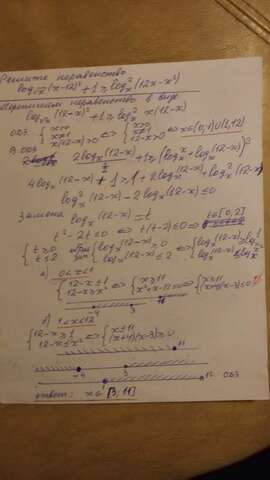 Решите неравенство
log_√x (x-12)² + 1 ≥ log²_x (12x-x²)
Перепишем неравенство в виде
log_√x (12-x)² + 1 ≥ log²_x x(12-x)
ОДЗ: { x>0 x≠1 x(12-x)>0 ⇔ { x>0 x≠1 12-x>0 ⇔ x∈(0,1)∪(1,12)
2log_x(12-x) / ½ + 1 ≥ (log_x x + log_x(12-x))²
4log_x(12-x) + 1 ≥ 1 + 2log_x(12-x) + log²_x(12-x)
log²_x(12-x) - 2log_x(12-x) ≤ 0
Замена log_x(12-x) = t
t² - 2t ≤ 0 ⇔ t(t-2) ≤ 0 ⇒ t∈[0,2]
{ t≥0 t≤2 { log_x(12-x) ≥ 0 log_x(12-x) ≤ 2 ⇔ { log_x(12-x) ≥ log_x 1 log_x(12-x) ≤ log_x x²
а) 0<x<1
{ 12-x≤1 12-x≥x² ⇔ { x≥11 x²+x-12≤0 ⇔ { x≥11 (x+4)(x-3)≤0
-4 3 11
б) 1<x<12
{ 12-x≥1 12-x≤x² ⇔ { x≤11 (x+4)(x-3)≥0
11
-4 3
1 12 ОДЗ
ответ: x∈[3;11]